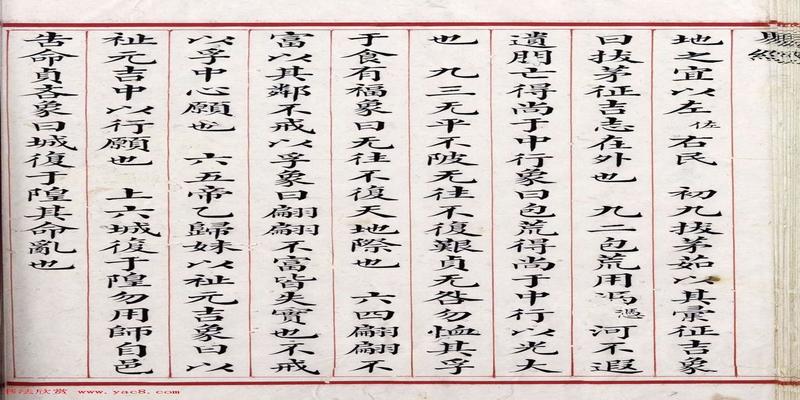 地之宜以左佐右民 初九拔茅茹以其彙征吉象
曰拔茅征吉志在外也 九二包荒用馮憑河不遐
遺朋亡得尚于中行象曰包荒得尚于中行以光大
也 九三无平不陂无往不復艱貞无咎勿恤其孚
于食有福象曰无往不復天地際也 六四翩翩不
富以其鄰不戒以孚象曰翩翩不富皆失實也不戒
以孚中心願也 六五帝乙歸妹以祉元吉象曰以
祉元吉中以行願也 上六城復于隍勿用師自邑
告命貞吝象曰城復于隍其命亂也
书法欣赏 www.yac8.com